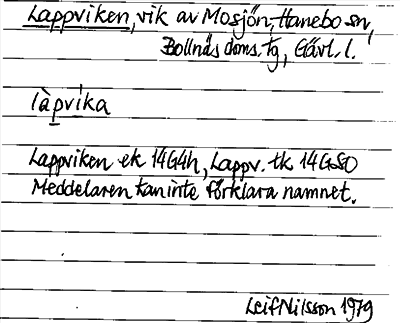 Lappviken, vik av Mosjön, Hanebo sn,
Bollnäs doms. tg, Gävl. l.
làpvíka
Lappviken ek 14G4h, Lappv. tk 14GSO
Meddelaren kan inte förklara namnet.
Leif Nilsson 1979